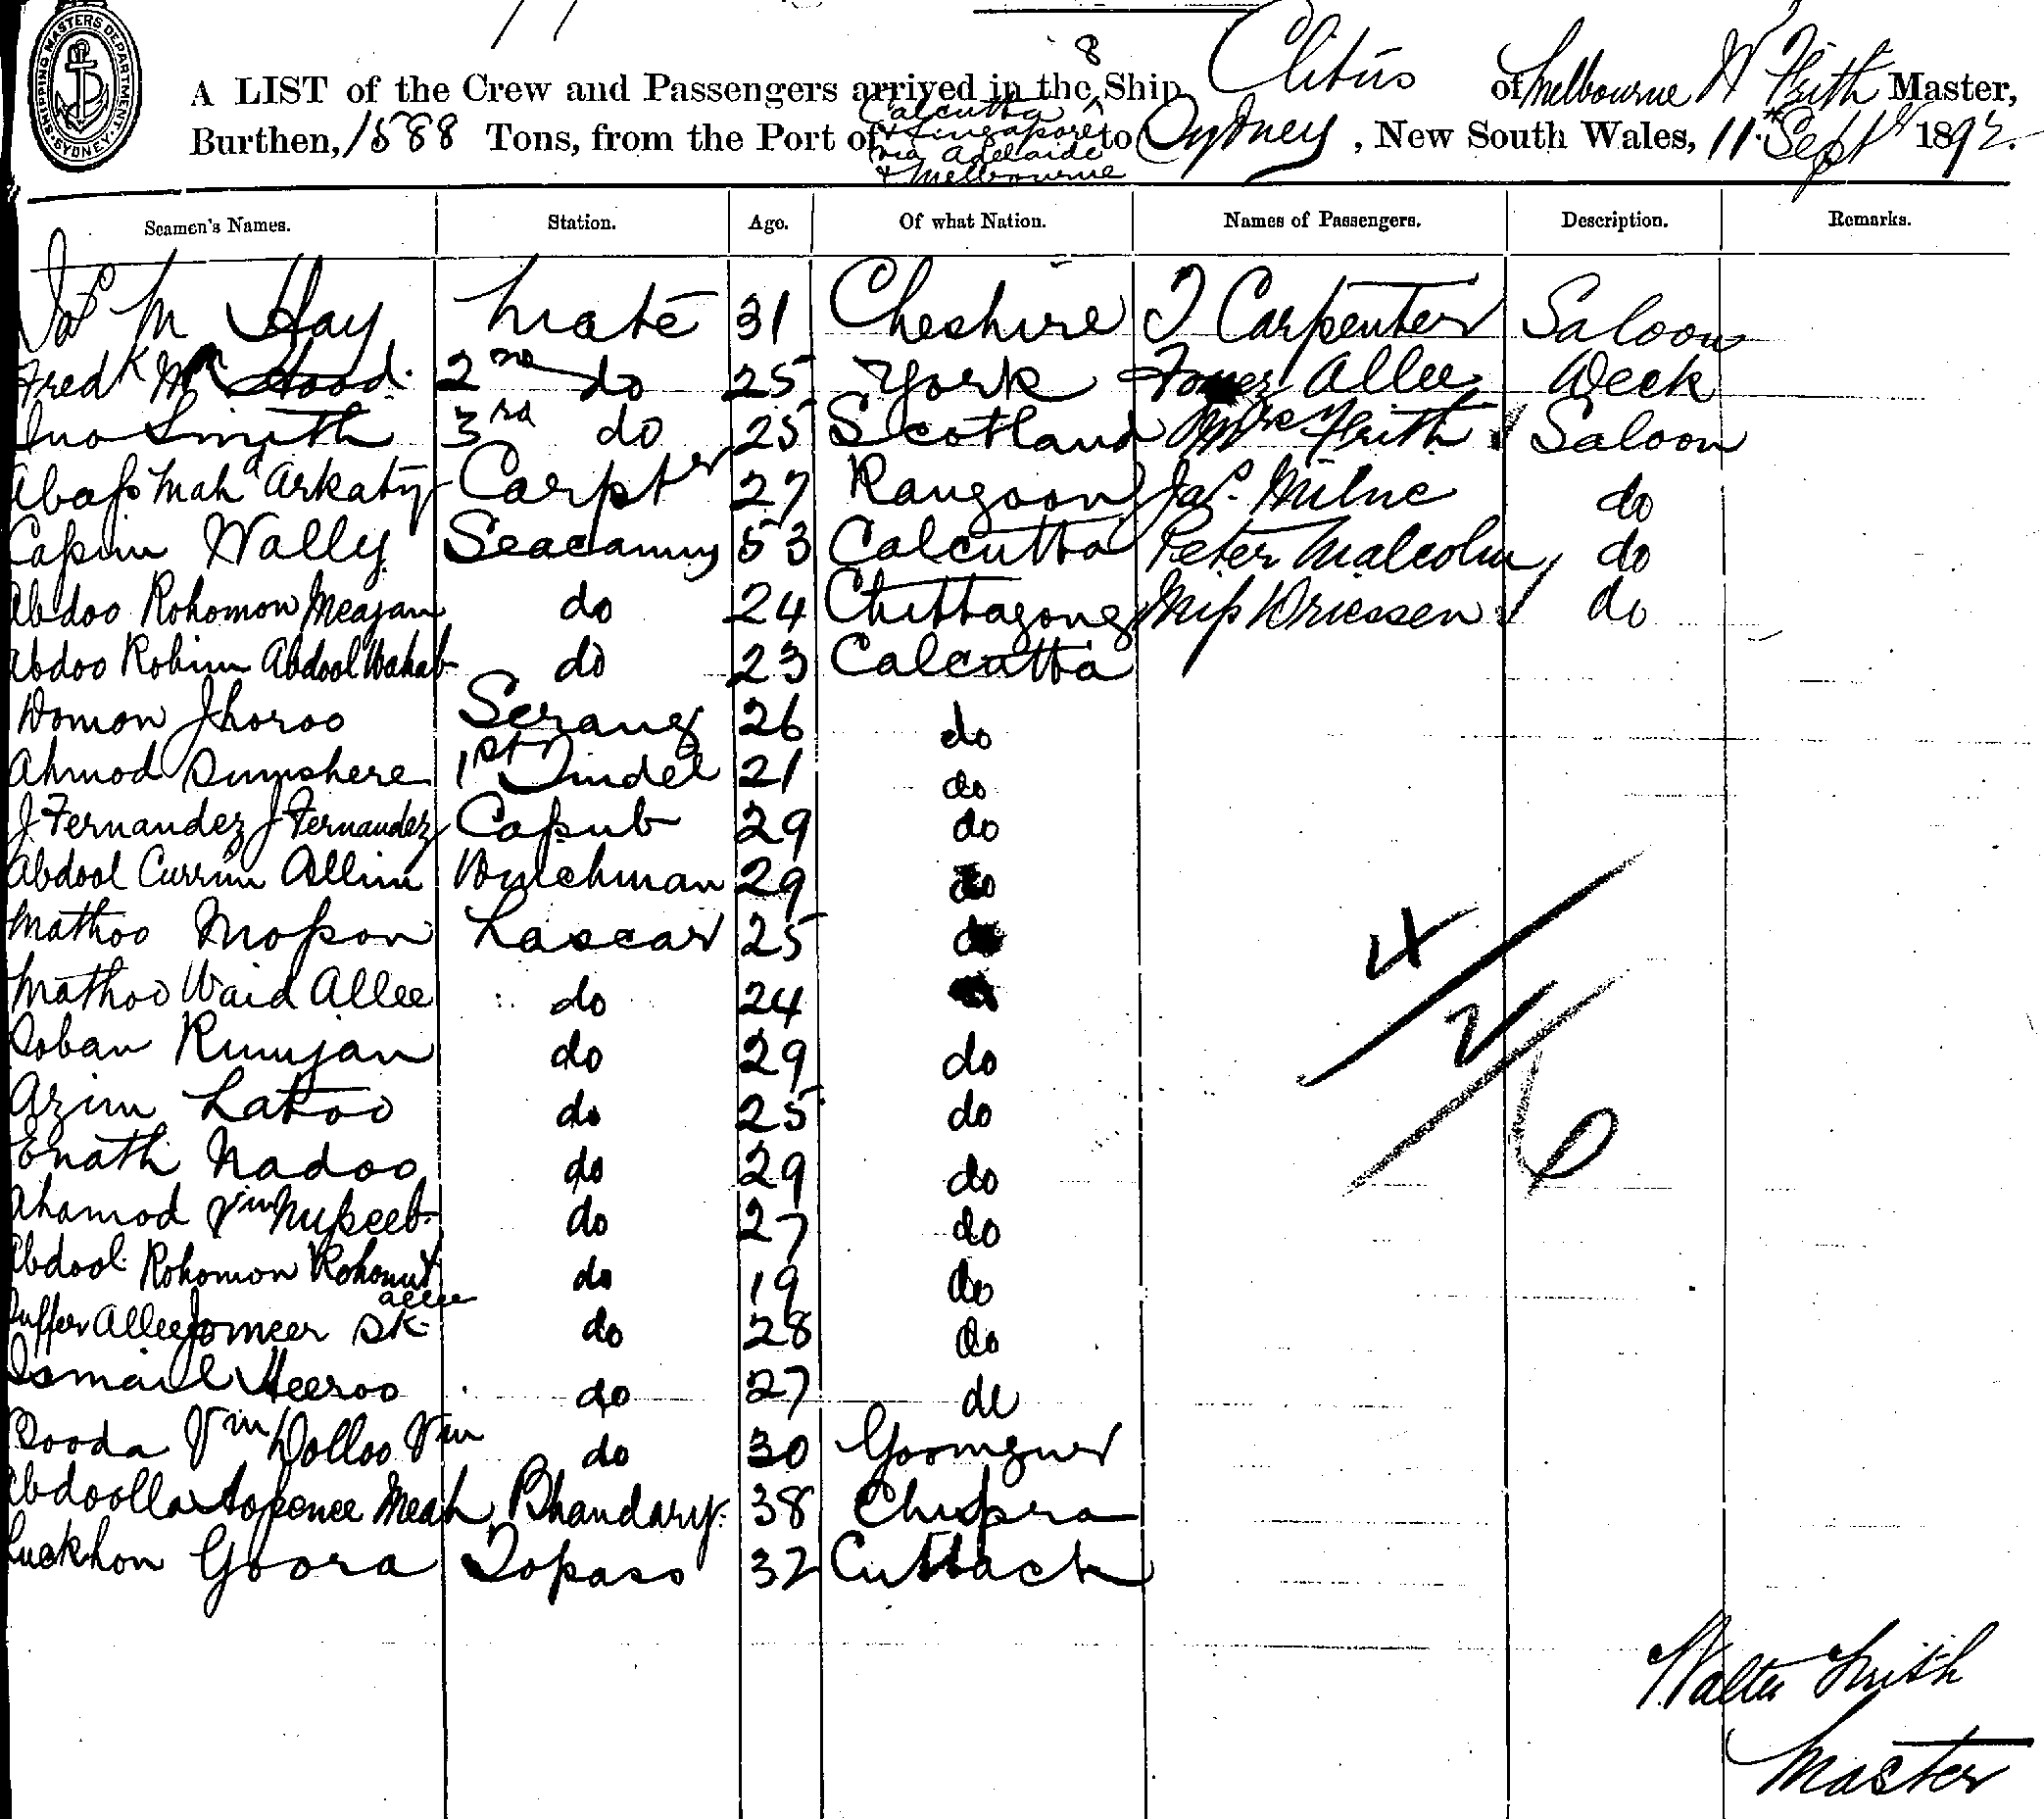 SHIPPING MASTERS DEPARTMENT
SYDNEY
A LIST of the Crew and Passengers arrived in the S Ship Clitus of Melbourne W Frith Master,
Burthen, 1588 Tons, from the Port of Calcutta & Singapore via Adelaide & Melbourne to Sydney, New South Wales, 11th Septr 1892.
Seamen's Names. Station. Age. Of what Nation. Names of Passengers. Description. Remarks.
Jas M Hay Mate 31 Cheshire J Carpenter Saloon
Fredk Wm Hood 2nd do 25 York Allee Deck
Jno Smith 3rd do 25 Scotland Mrs Frith Saloon
Abass Mahd Arkaty Carptr 27 Rangoon Jas. Milne do
Cassim Wally Seacunny 53 Calcutta Peter Malcolm do
Abdoo Rohomon Meajan do 24 Chittagong Miss Driessen do
Abdoo Robim Abdool Wahab do 23 Calcutta
Domon Jhoroo Serang 26 do
Ahmod Sumshere 1st Tindel 21 do
J Fernandez J Fernandez Cassub 29 do
Abdool Currim Allim Winchman 29 do
Mathoo Mosson Lascar 25 do
Mathoo Waid Allee do 24
Soban Rumjan do 29 do
Azim Latoo do 25 do
Enath Nadoo do 29 do
Ahamod Nusseeb do 27 do
Abdool Rohomon Rohomut Allee do 19 do
Allee Jomeer Sk do 28 do
Ismail Heeroo do 27 do
Dolloo do 30
Abdoolla Meah Bhandary 38 Chuppra
Luckhon Goora Topass 32 Cuttack
4
2
6
Walter Frith
Master